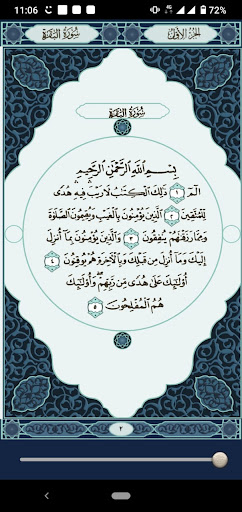 11:06
72%
سُورَةُ البَقَرَةِ
الجُزْءُ الأَوَّلُ
سُورَةُ البَقَرَةِ
بِسْمِ ٱللَّهِ ٱلرَّحْمَٰنِ ٱلرَّحِيمِ
الٓمٓ ١ ذَٰلِكَ ٱلْكِتَٰبُ لَا رَيْبَ فِيهِ هُدًى
لِّلْمُتَّقِينَ ٢ ٱلَّذِينَ يُؤْمِنُونَ بِٱلْغَيْبِ وَيُقِيمُونَ ٱلصَّلَوٰةَ
وَمِمَّا رَزَقْنَٰهُمْ يُنفِقُونَ ٣ وَٱلَّذِينَ يُؤْمِنُونَ بِمَآ أُنزِلَ
إِلَيْكَ وَمَآ أُنزِلَ مِن قَبْلِكَ وَبِٱلْءَاخِرَةِ هُمْ يُوقِنُونَ ٤
أُو۟لَٰٓئِكَ عَلَىٰ هُدًى مِّن رَّبِّهِمْ ۖ وَأُو۟لَٰٓئِكَ
هُمُ ٱلْمُفْلِحُونَ ٥
٢